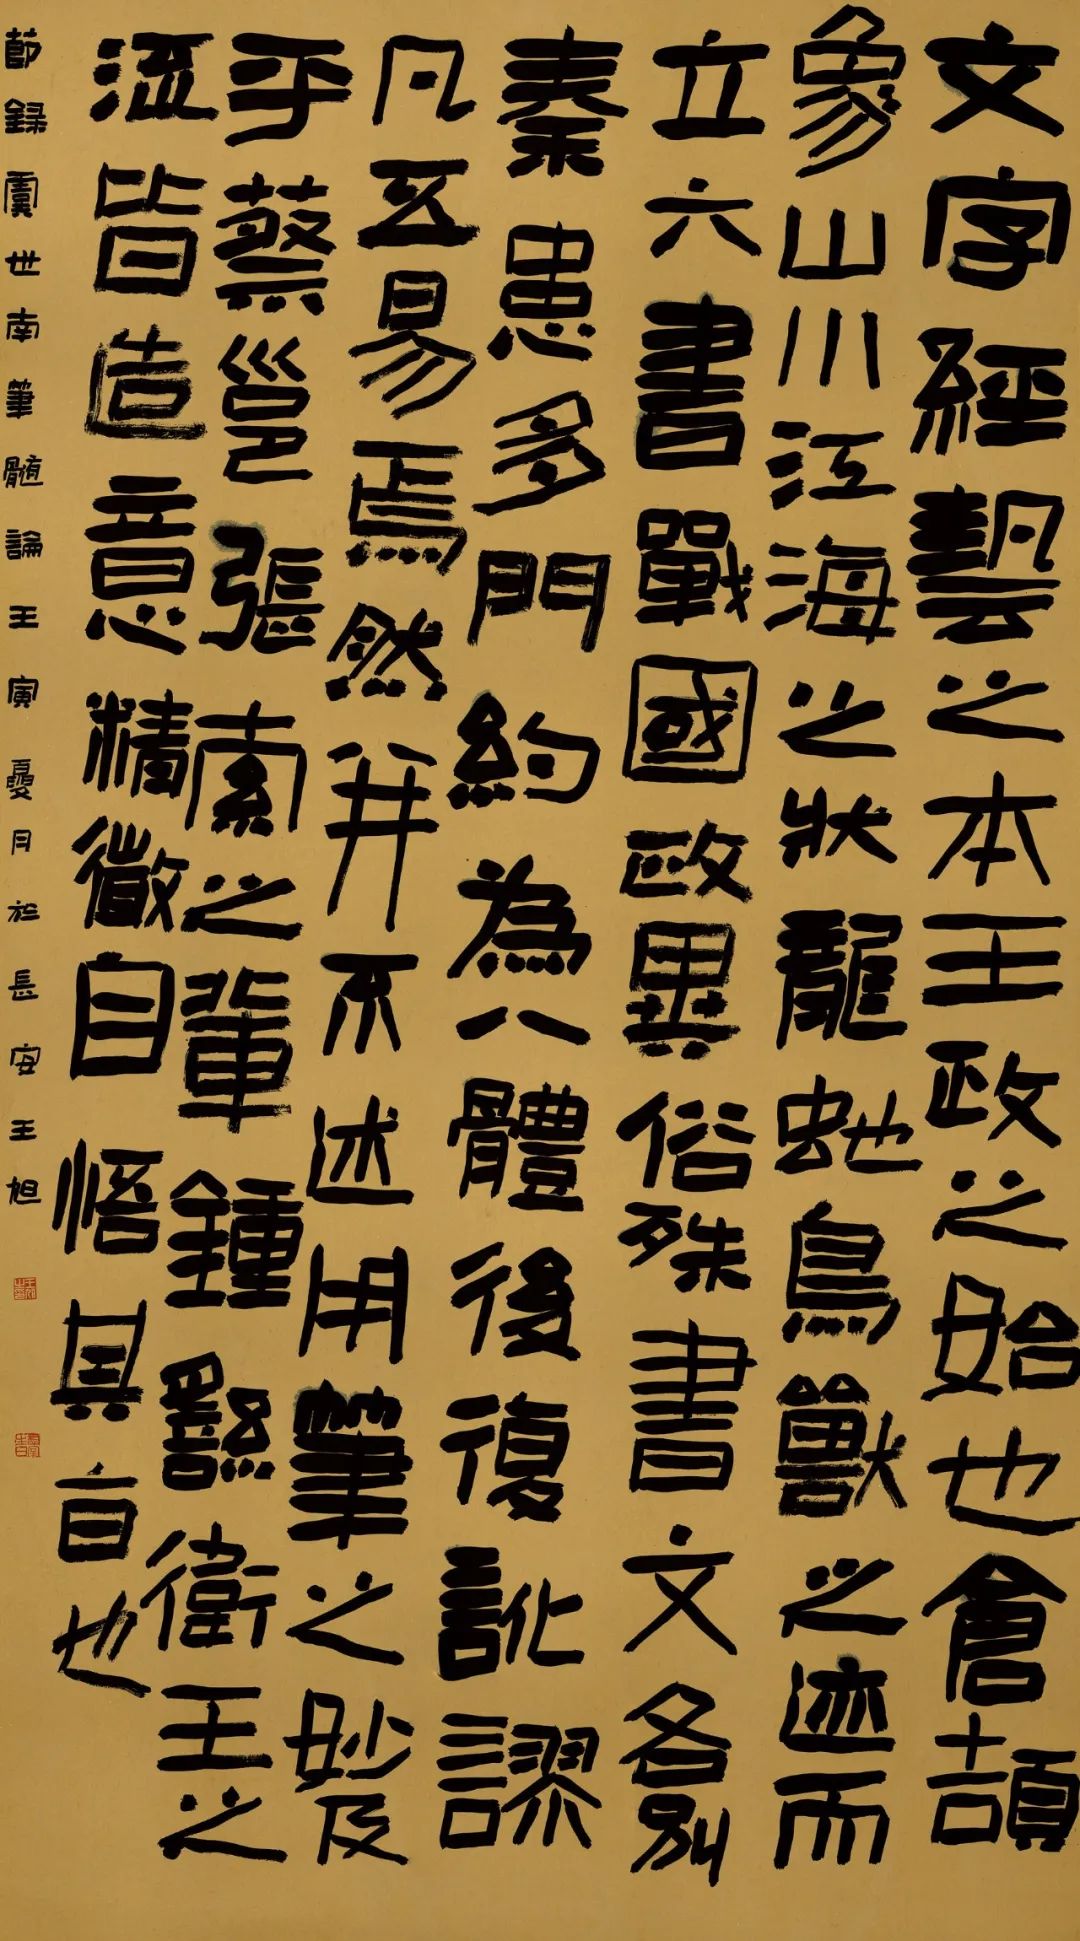 文字經藝之本王政之始也倉頡
象山川江海之狀龍虵鳥獸之迹而
立六書戰國政異俗殊書文各別
秦患多門約為八體後復訛謬
凡五易焉然并不述用筆之妙及
乎蔡邕張索之輩鍾繇衛王之
流皆造意精微自悟其旨也
節錄虞世南筆髓論王寅夏月於長安王旭